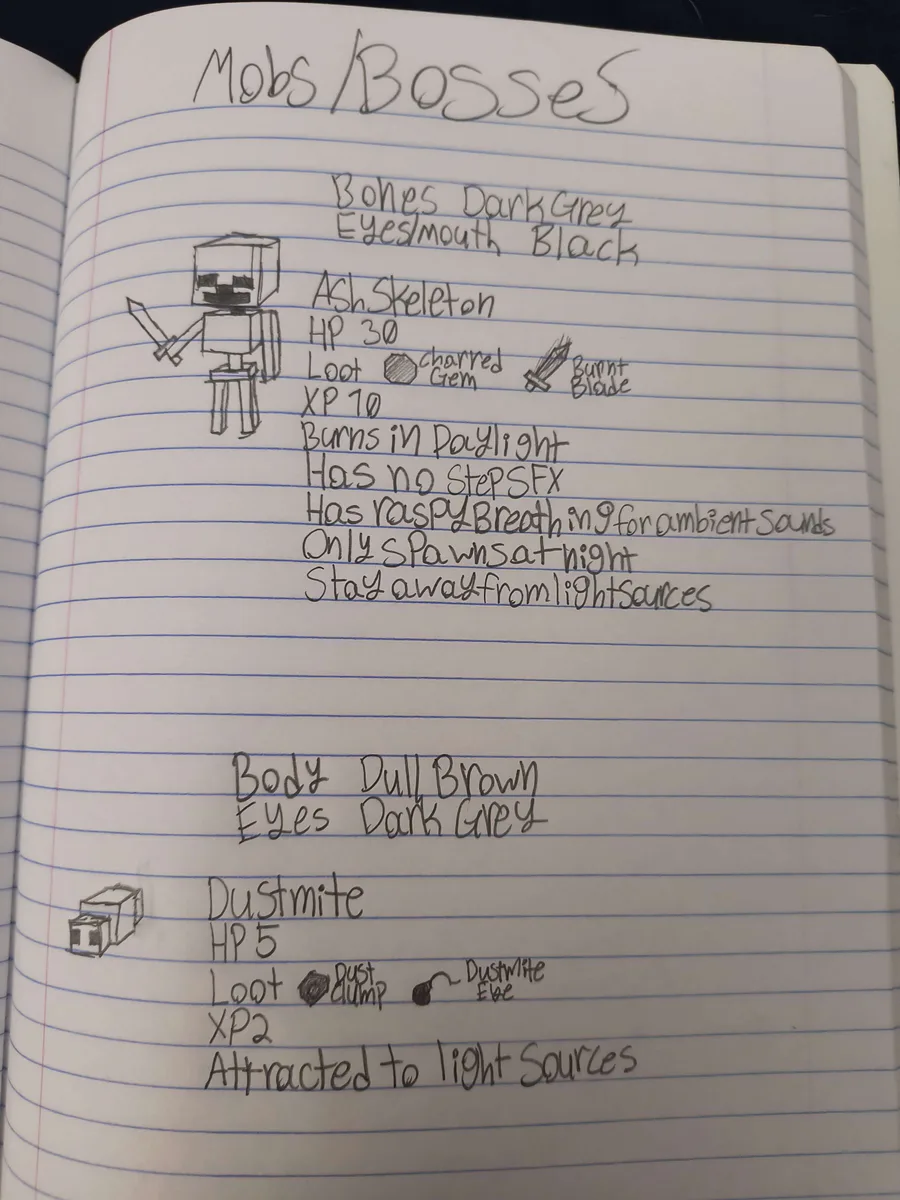 Mobs/Bosses
Bones Dark Grey
Eyes/mouth Black
Ash Skeleton
HP 30
Loot Charred Gem Burnt Blade
XP 10
Burns in Daylight
Has no Step SFX
Has raspy Breathing for ambient Sounds
Only spawns at night
Stay away from light sources
Body Dull Brown
Eyes Dark Grey
Dustmite
HP 5
Loot Dust Clump Dustmite Eye
XP 2
Attracted to light Sources